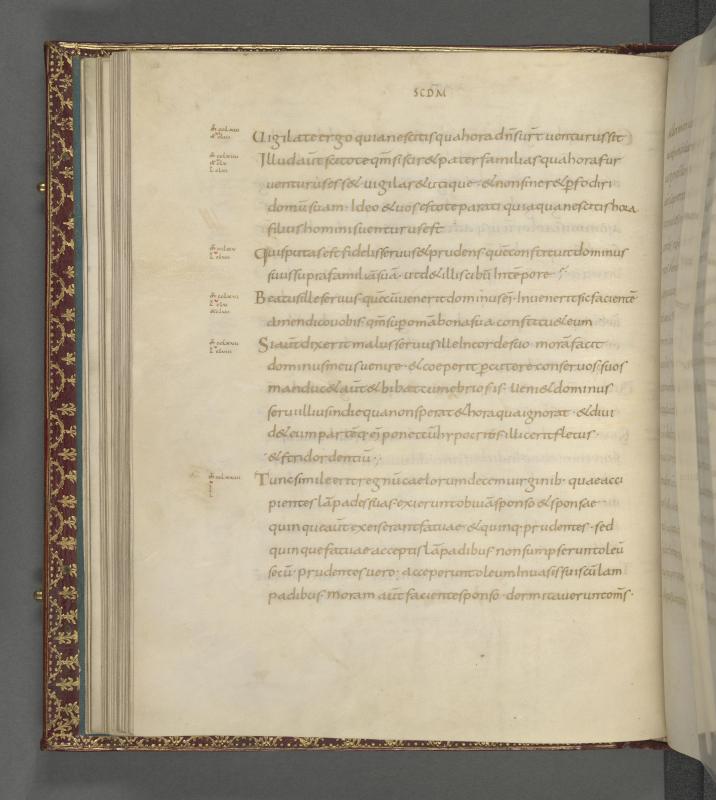 SCDM
Uigilate ergo quia nescitis qua hora dn̄s ur̄t uenturus sit
Illud aūt scitote qm̄ si sciret pater familias qua hora fur
uenturus esset uigilaret utique · et non sineret pfodiri
domū suam · Ideo et uos estote parati quia qua nescitis hora
filius hominis uenturus est
Quis putas est fidelis seruus et prudens · quē constituit dominus
suus supra familiā suā · ut det illis cibū Intēpore
Beatus ille seruus · quē cū uenerit dominus ej · Inuenerit sic facientē
amen dico uobis · qm̄ sup omā bona sua constituet eum
Si aūt dixerit malus seruus ille In corde suo · morā facit
dominus meus uenire · et coeperit pcutere conseruos · suos
manducet aūt et bibat cum ebriosis · Ueniet dominus
serui illius in die qua non sperat et hora qua ignorat · et diui
det eum partēq ej ponet cū hypocritis · illic erit fletus ·
et stridor dentiū
Tunc simile erit regnū caelorum decem uirginib · quae acci
pientes lāpades suas · exierunt obuiā sponso et sponsae
quinque aūt ex eis erant fatuae · et quinq · prudentes · sed
quinque fatuae acceptis lāpadibus · non sumpserunt oleū
secū · prudentes uero · acceperunt oleum In uasis suis cū lam
padibus · moram aūt faciente sponso · dormitauerunt om̄s ·